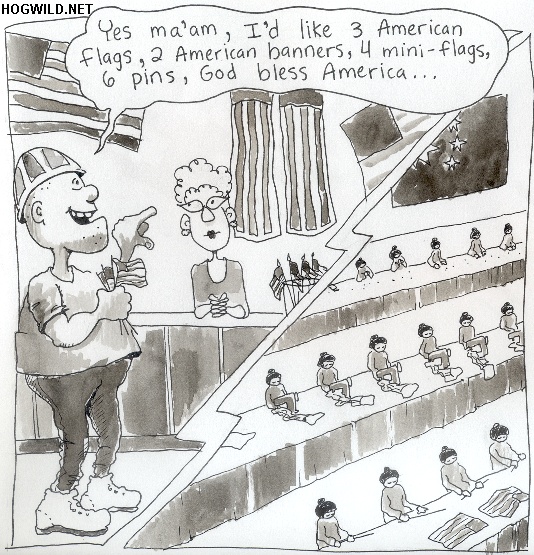 HOGWILD.NET
Yes ma'am, I'd like 3 American
flags, 2 American banners, 4 mini-flags,
6 pins, God bless America...